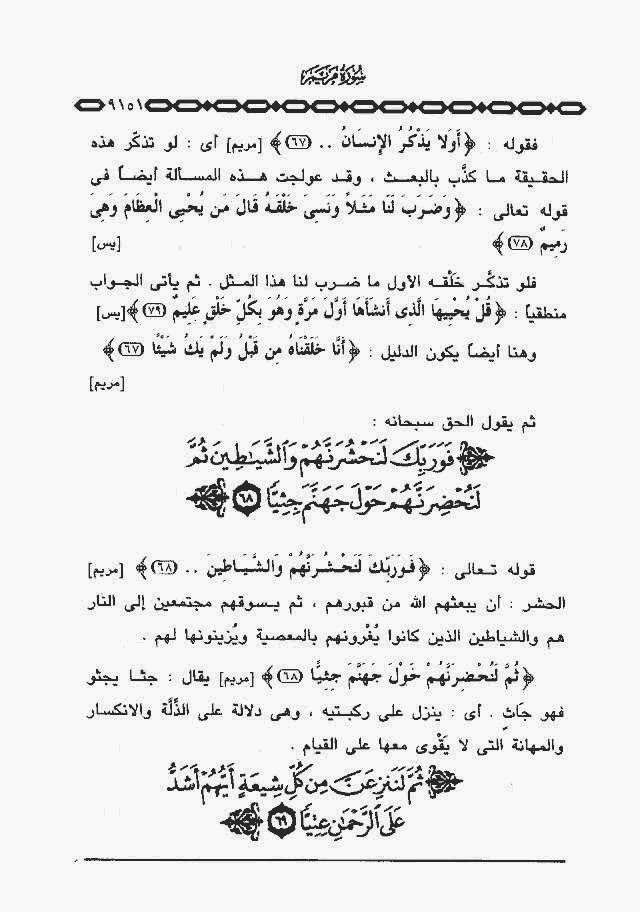 سُورَةُ مَرْيَمَ
٩١٥١
فقوله : ﴿ أَوَلا يَذْكُرُ الإِنسَانُ .. (٦٧) ﴾ [مريم] أى : لو تذكّر هذه
الحقيقة ما كذَّب بالبعث ، وقد عولجت هذه المسألة أيضاً فى
قوله تعالى : ﴿ وَضَرَبَ لَنَا مَثَلاً وَنَسِىَ خَلْقَهُ قَالَ مَن يُحْيِى الْعِظَامَ وَهِىَ
رَمِيمٌ (٧٨) ﴾ [يس]
فلو تذكَّر خَلْقه الأول ما ضرب لنا هذا المثل . ثم يأتى الجواب
منطقياً : ﴿ قُلْ يُحْيِيهَا الَّذِى أَنشَأَهَا أَوَّلَ مَرَّةٍ وَهُوَ بِكُلِّ خَلْقٍ عَلِيمٌ (٧٩) ﴾ [يس]
وهنا أيضاً يكون الدليل : ﴿ أَنَّا خَلَقْنَاهُ مِن قَبْلُ وَلَمْ يَكُ شَيْئًا (٦٧) ﴾
[مريم]
ثم يقول الحق سبحانه :
فَوَرَبِّكَ لَنَحْشُرَنَّهُمْ وَالشَّيَاطِينَ ثُمَّ
لَنُحْضِرَنَّهُمْ حَوْلَ جَهَنَّمَ جِثِيًّا ٦٨
قوله تعالى : ﴿ فَوَرَبِّكَ لَنَحْشُرَنَّهُمْ وَالشَّيَاطِينَ .. (٦٨) ﴾ [مريم]
الحشر : أن يبعثهم الله من قبورهم ، ثم يسوقهم مجتمعين إلى النار
هم والشياطين الذين كانوا يُغْرونهم بالمعصية ويُزينونها لهم .
﴿ ثُمَّ لَنُحْضِرَنَّهُمْ حَوْلَ جَهَنَّمَ جِثِيًّا (٦٨) ﴾ [مريم] يقال : جثا يجثو
فهو جَاثٍ . أى : ينزل على ركبتيه ، وهى دلالة على الذِّلَّة والانكسار
والمهانة التى لا يَقْوى معها على القيام .
ثُمَّ لَنَنزِعَنَّ مِن كُلِّ شِيعَةٍ أَيُّهُمْ أَشَدُّ
عَلَى الرَّحْمَٰنِ عِتِيًّا ٦٩